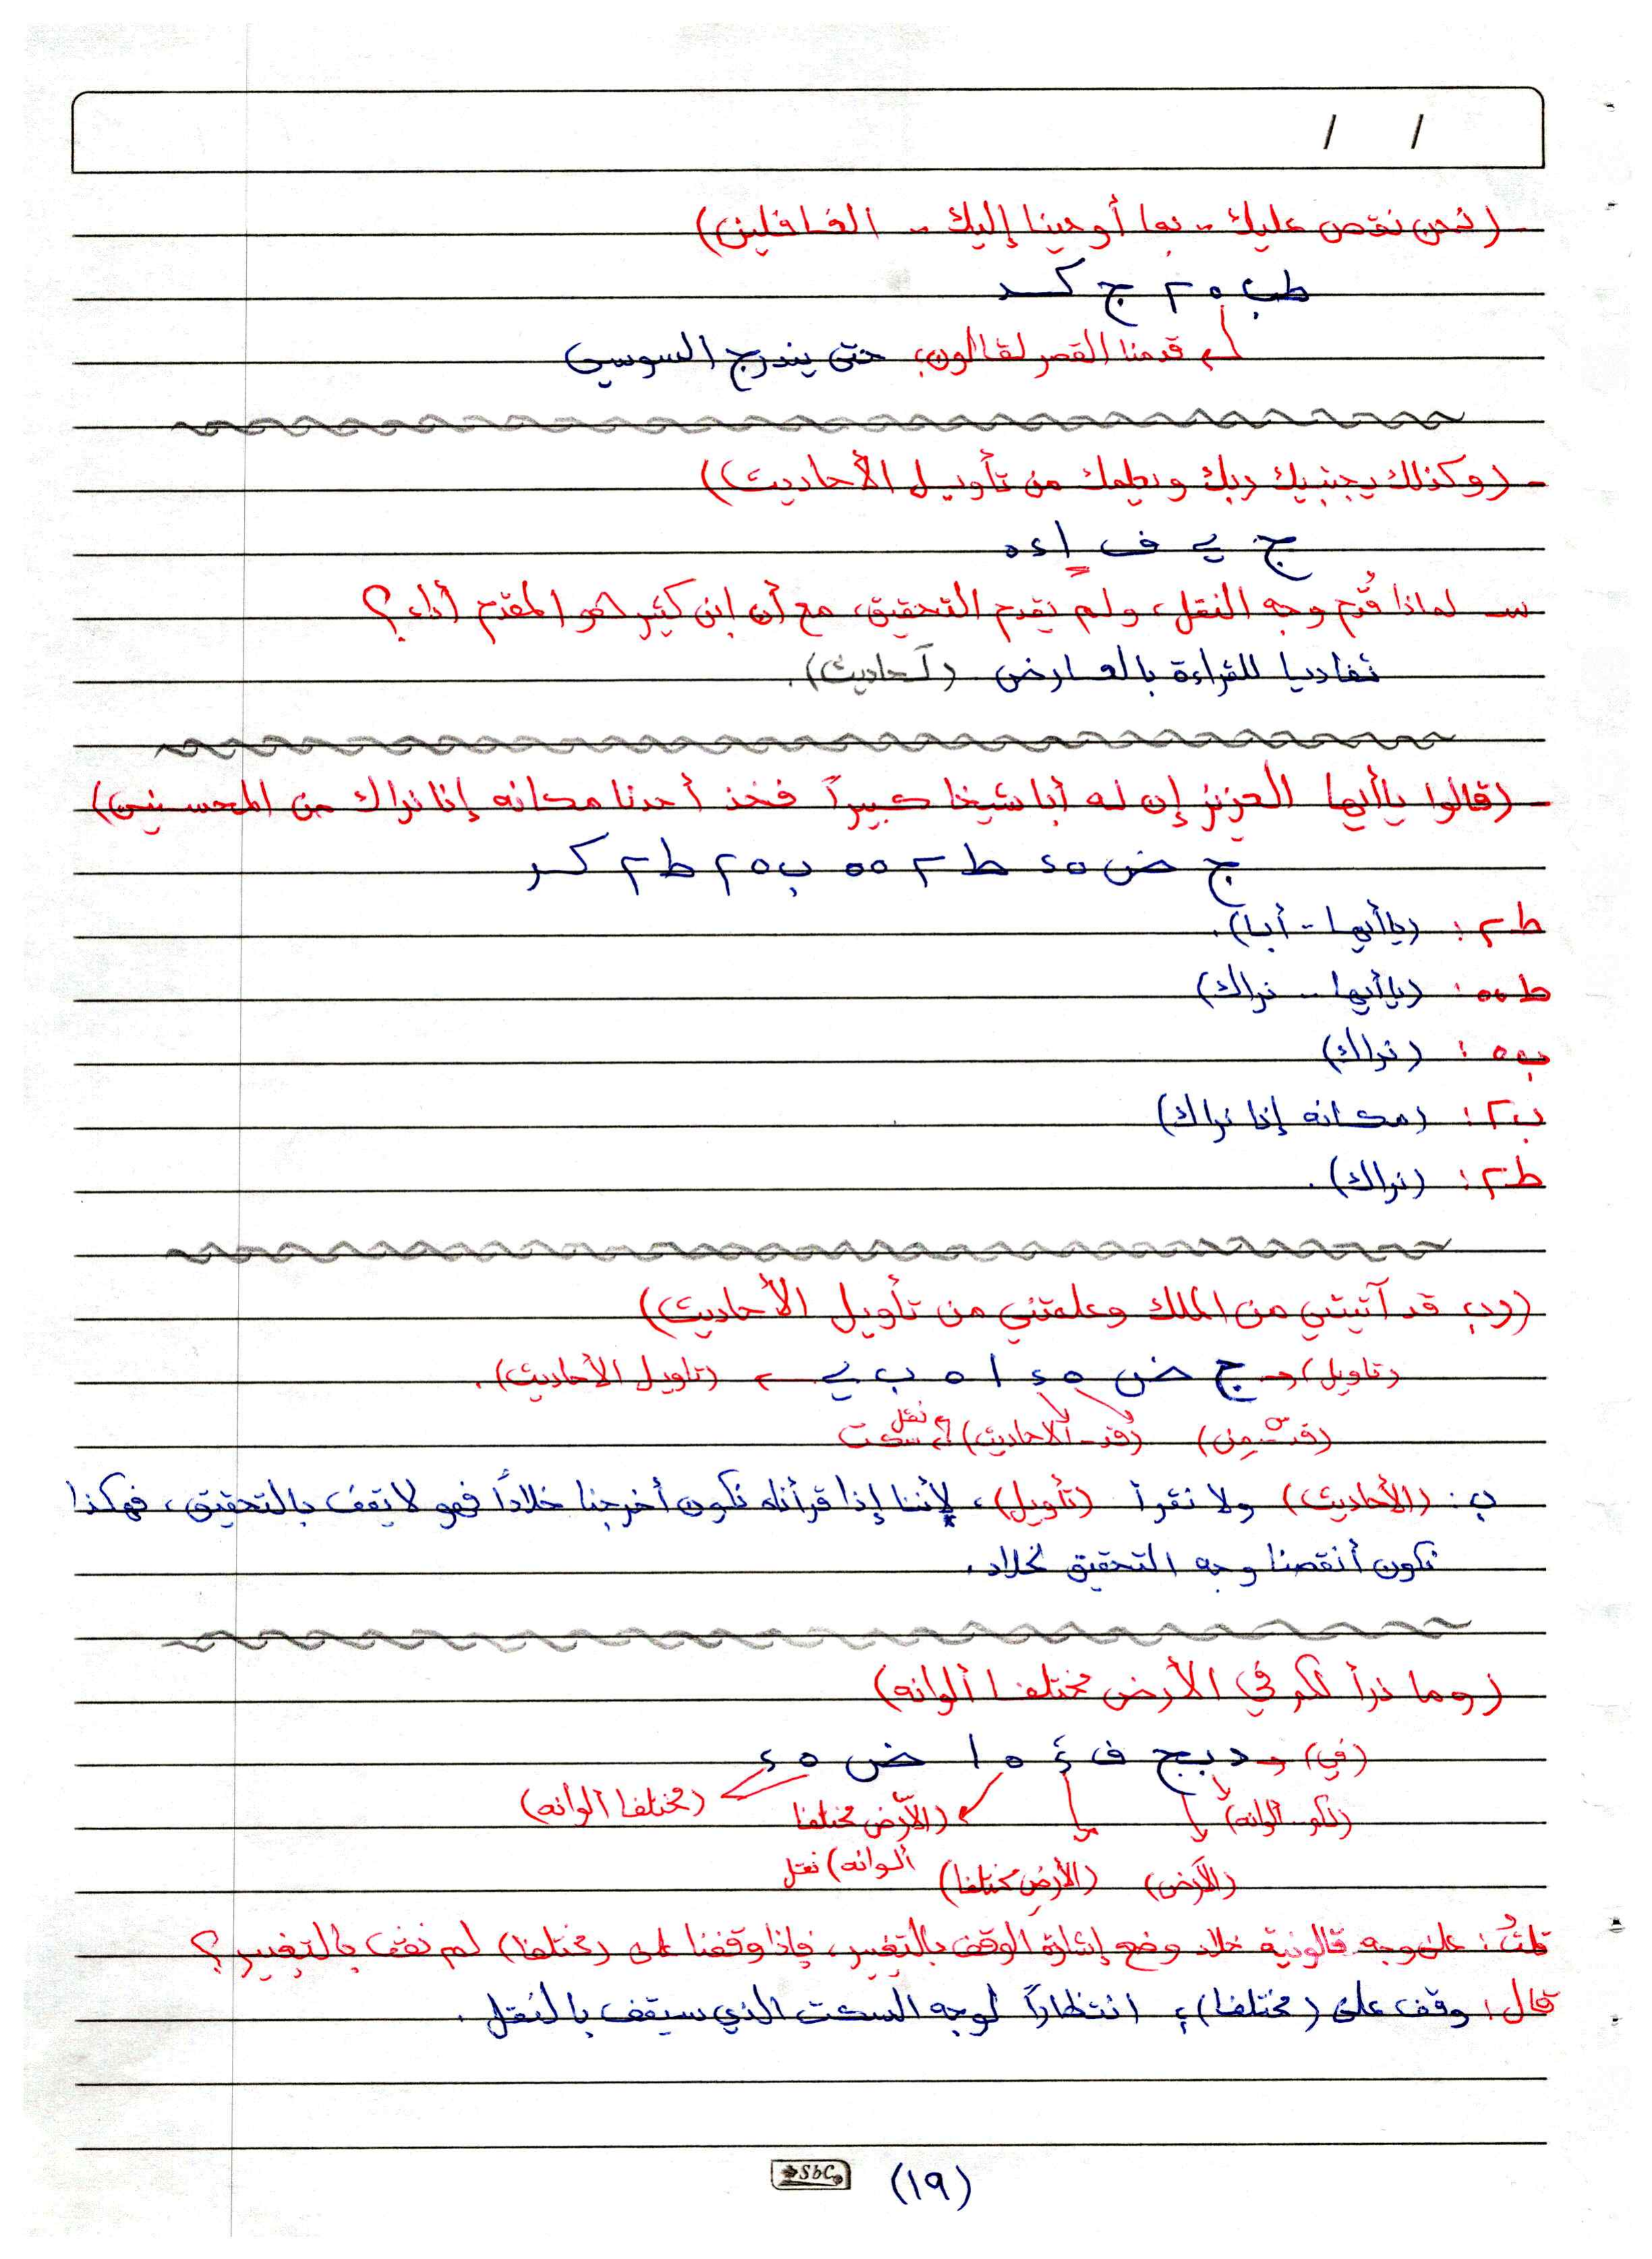 / /
- (نحن نقص عليك .. بما أوحينا إليك .. الغافلين)
طب ه ٢ ج كــد
قدمنا القصر لقالون؛ حتى يندرج السوسي
- (وكذلك يجتبيك ربك ويعلمك من تأويل الأحاديث)
ج ي ف ا ء ه
س- لماذا قُدم وجه النقل، ولم يقدم التحقيق، مع أن ابن كثير هو المقدم أداء؟
تفاديا للقراءة بالعارض (لَحاديث).
- (قالوا ياأيها العزيز إن له أبا شيخا كبيراً فخذ أحدنا مكانه إنا نراك من المحسنين)
ج ض ه ء ط ٢ ه ه ب ه ٢ ط ٢ كــر
ط ٢ : (ياأيها - أبا).
ط ه ه : (ياأيها .. نراك)
ب ه : (نراك)
ب ٢ : (مكانه إنا نراك)
ط ٢ : (نراك).
(رب قد آتيتني من الملك وعلمتني من تأويل الأحاديث)
(تاويل) ج ض ه ء ا ه ب ي (تاويل الأحاديث).
(قد - من) (قد - الاحاديث) نقل سكت
ب : (الأحاديث) ولا نقرأ (تأويل)، لأننا إذا قرأناه نكون أخرجنا خلاداً فهو لا يقف بالتحقيق، فهكذا
نكون أنقصنا وجه التحقيق لخلاد.
(وما ذرأ لكم في الأرض مختلفا ألوانه)
(في) د ب ج ف ء ه ا ض ه ء
(لكم - ألوانه) (الأرض مختلفا (مختلفا ألوانه)
(الأرض) (الأرض مختلفا) ألوانه) نقل
قلتُ : على وجه قالونية خلاد وضع إشارة الوقف بالتغيير، فإذا وقفنا على (مختلفا) لم نقف بالتغيير؟
قال : وقف على (مختلفا)؛ انتظاراً لوجه السكت الذي سيقف بالنقل.
SbC (١٩)